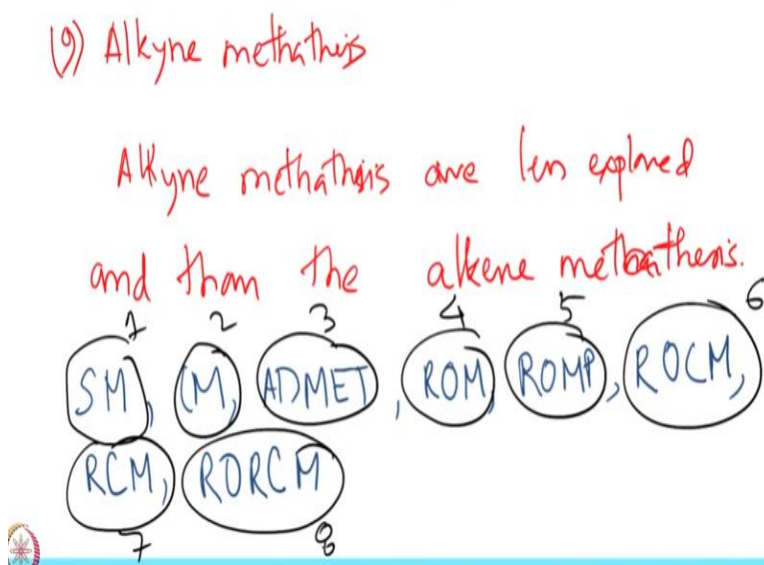 (9) Alkyne methathis
Alkyne methathsis are less explored
and than the alkene metathesis.
1 2 3 4 5 6
SM, CM, ADMET, ROM, ROMP, ROCM,
RCM, RORCM
7 8